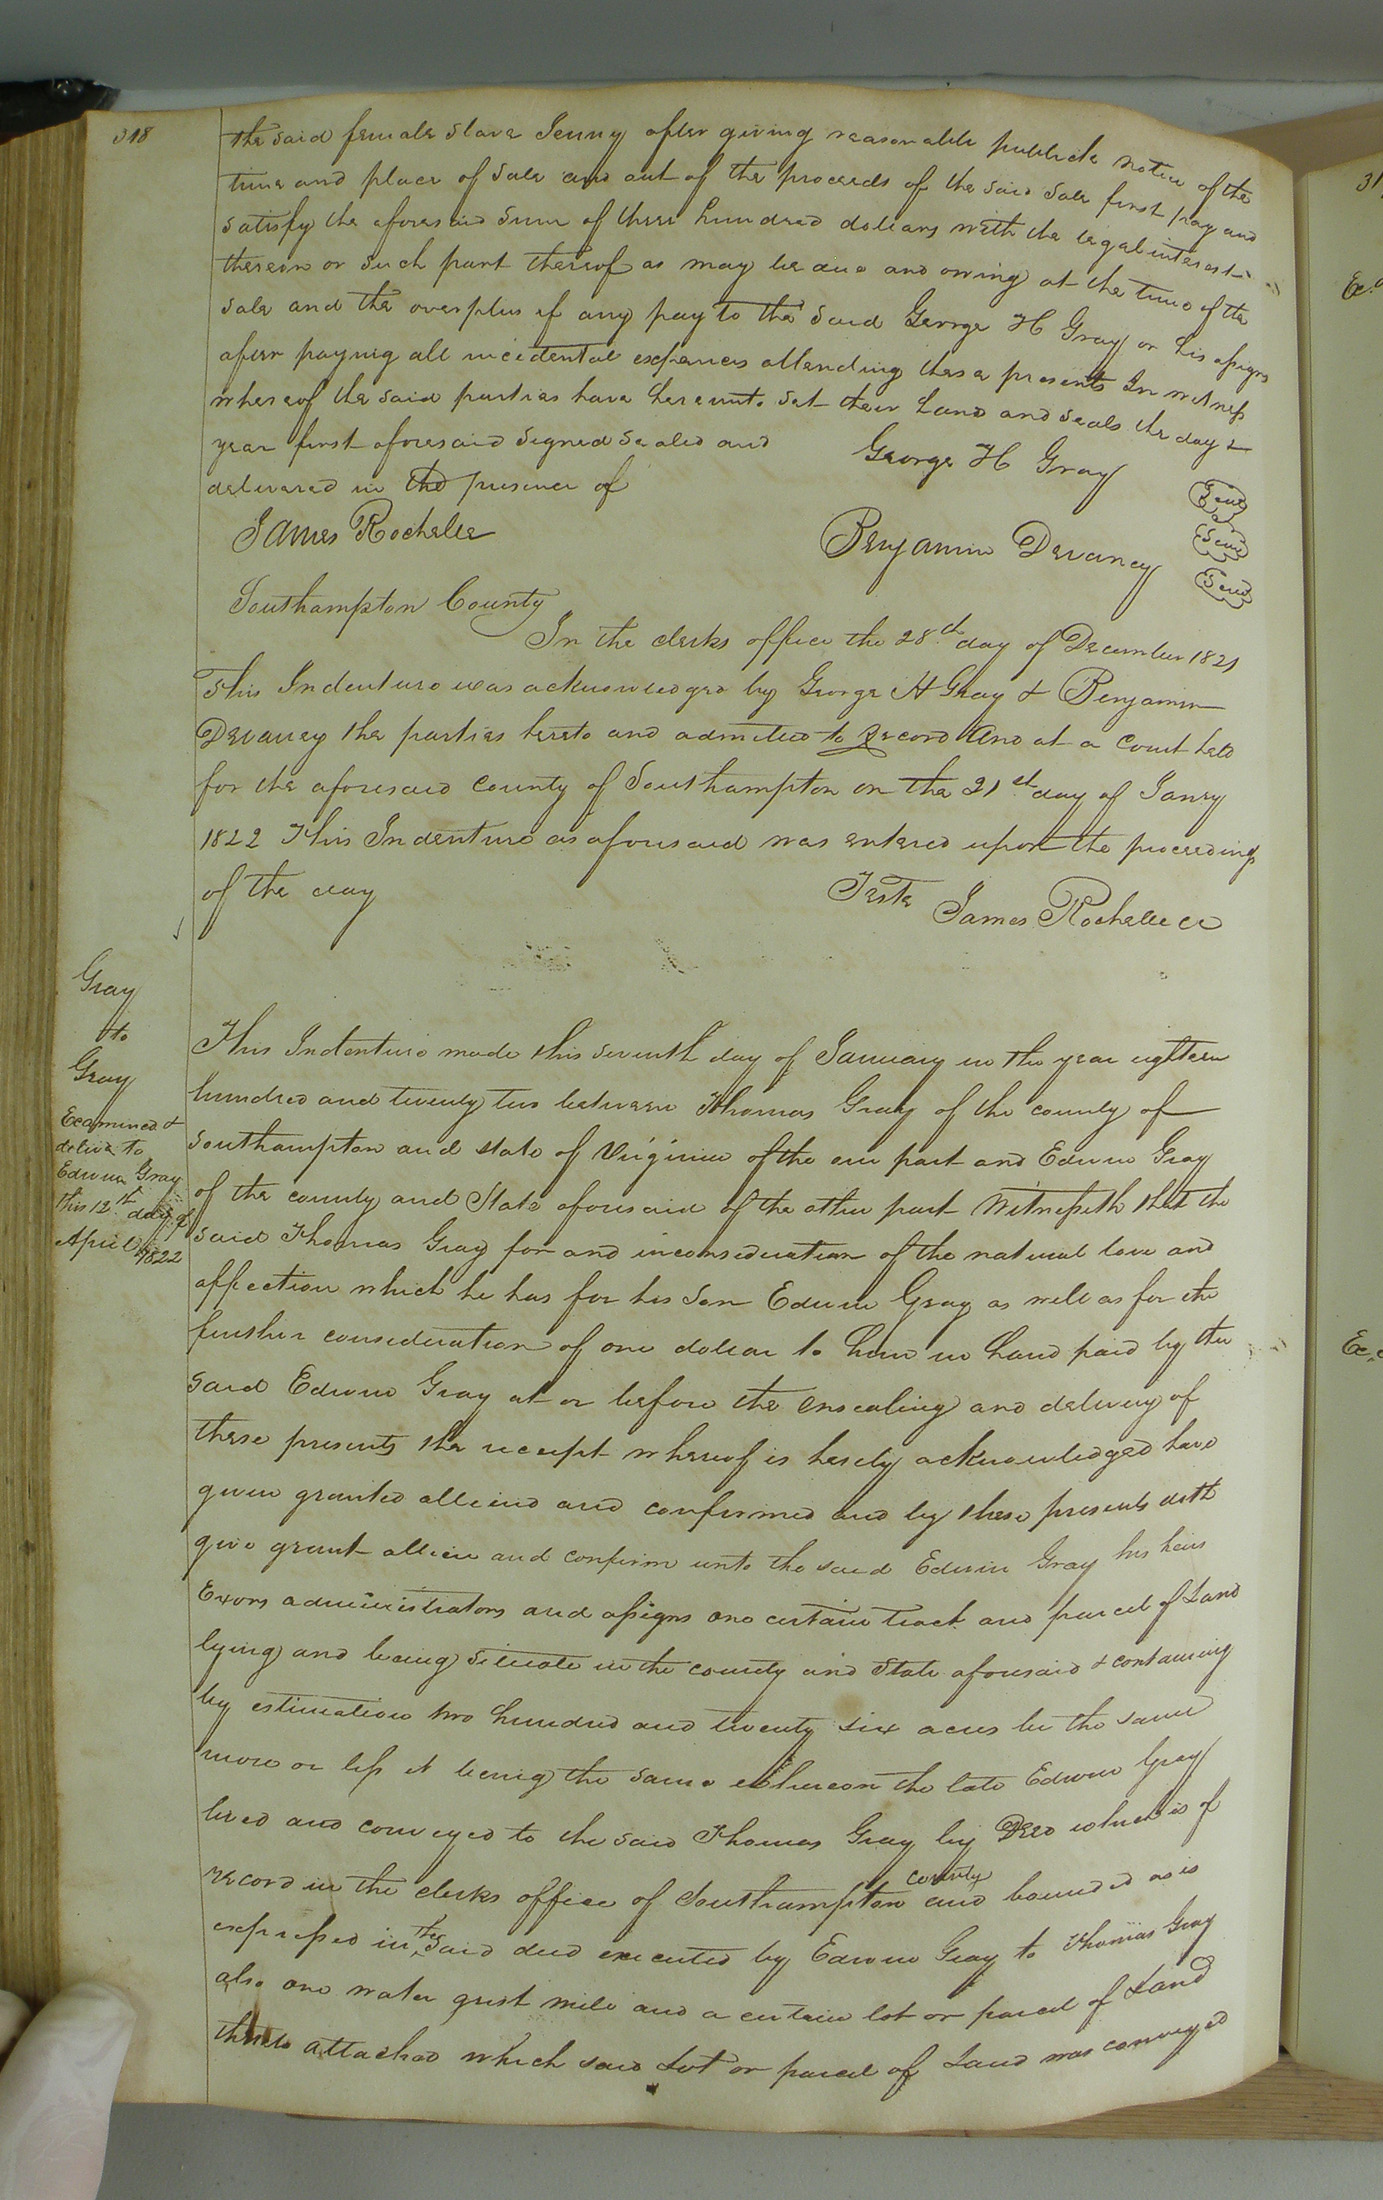 318
the said female slave Jenny after giving reasonable publick notice of the
time and place of sale and out of the proceeds of the said sale first pay and
satisfy the aforesaid sum of three hundred dollars with the legal interest
thereon or such part thereof as may be due and owing at the time of the
sale and the overplus if any pay to the said George H Gray or his assigns
after paying all incidental expences attending these presents In witness
whereof the said parties have hereunto set their hand and seals the day &
year first aforesaid signed sealed and
George H Gray Seal
delivered in the presence of
Seal
James Rochelle
Benjamin Devaney Seal
Southampton County
In the clerks office the 28th day of December 1821
This Indenture was acknowledged by George H Gray & Benjamin
Devaney the parties hereto and admitted to Record And at a Court held
for the aforesaid county of Southampton on the 21st day of Jany
1822 This Indenture as aforesaid was entered upon the proceedings
of the day
Teste James Rochelle cc
Gray
to
Gray
Examined &
deliverd to
Edwin Gray
this 12th day of
April 1822
This Indenture made this seventh day of January in the year eighteen
hundred and twenty two between Thomas Gray of the county of
Southampton and state of Virginia of the one part and Edwin Gray
of the county and State aforesaid of the other part Witnesseth that the
said Thomas Gray for and in consideration of the natural love and
affection which he has for his son Edwin Gray as well as for the
further consideration of one dollar to him in hand paid by the
said Edwin Gray at or before the ensealing and delivery of
these presents the receipt whereof is hereby acknowledged have
given granted alliend and confirmed and by these presents doth
give grant allien and confirm unto the said Edwin Gray his heirs
Exors administrators and assigns one certain tract and parcel of Land
lying and being situate in the county and State aforesaid & containing
by estimation two hundred and twenty six acres be the same
more or less it being the same whereon the late Edwin Gray
lived and conveyed to the said Thomas Gray by Deed which is of
record in the clerks office of Southampton county and bounded as is
expressed in the said deed executed by Edwin Gray to Thomas Gray
also one water grist mill and a certain lot or parcel of Land
thereto attached which said Lot or parcel of Land was conveyed